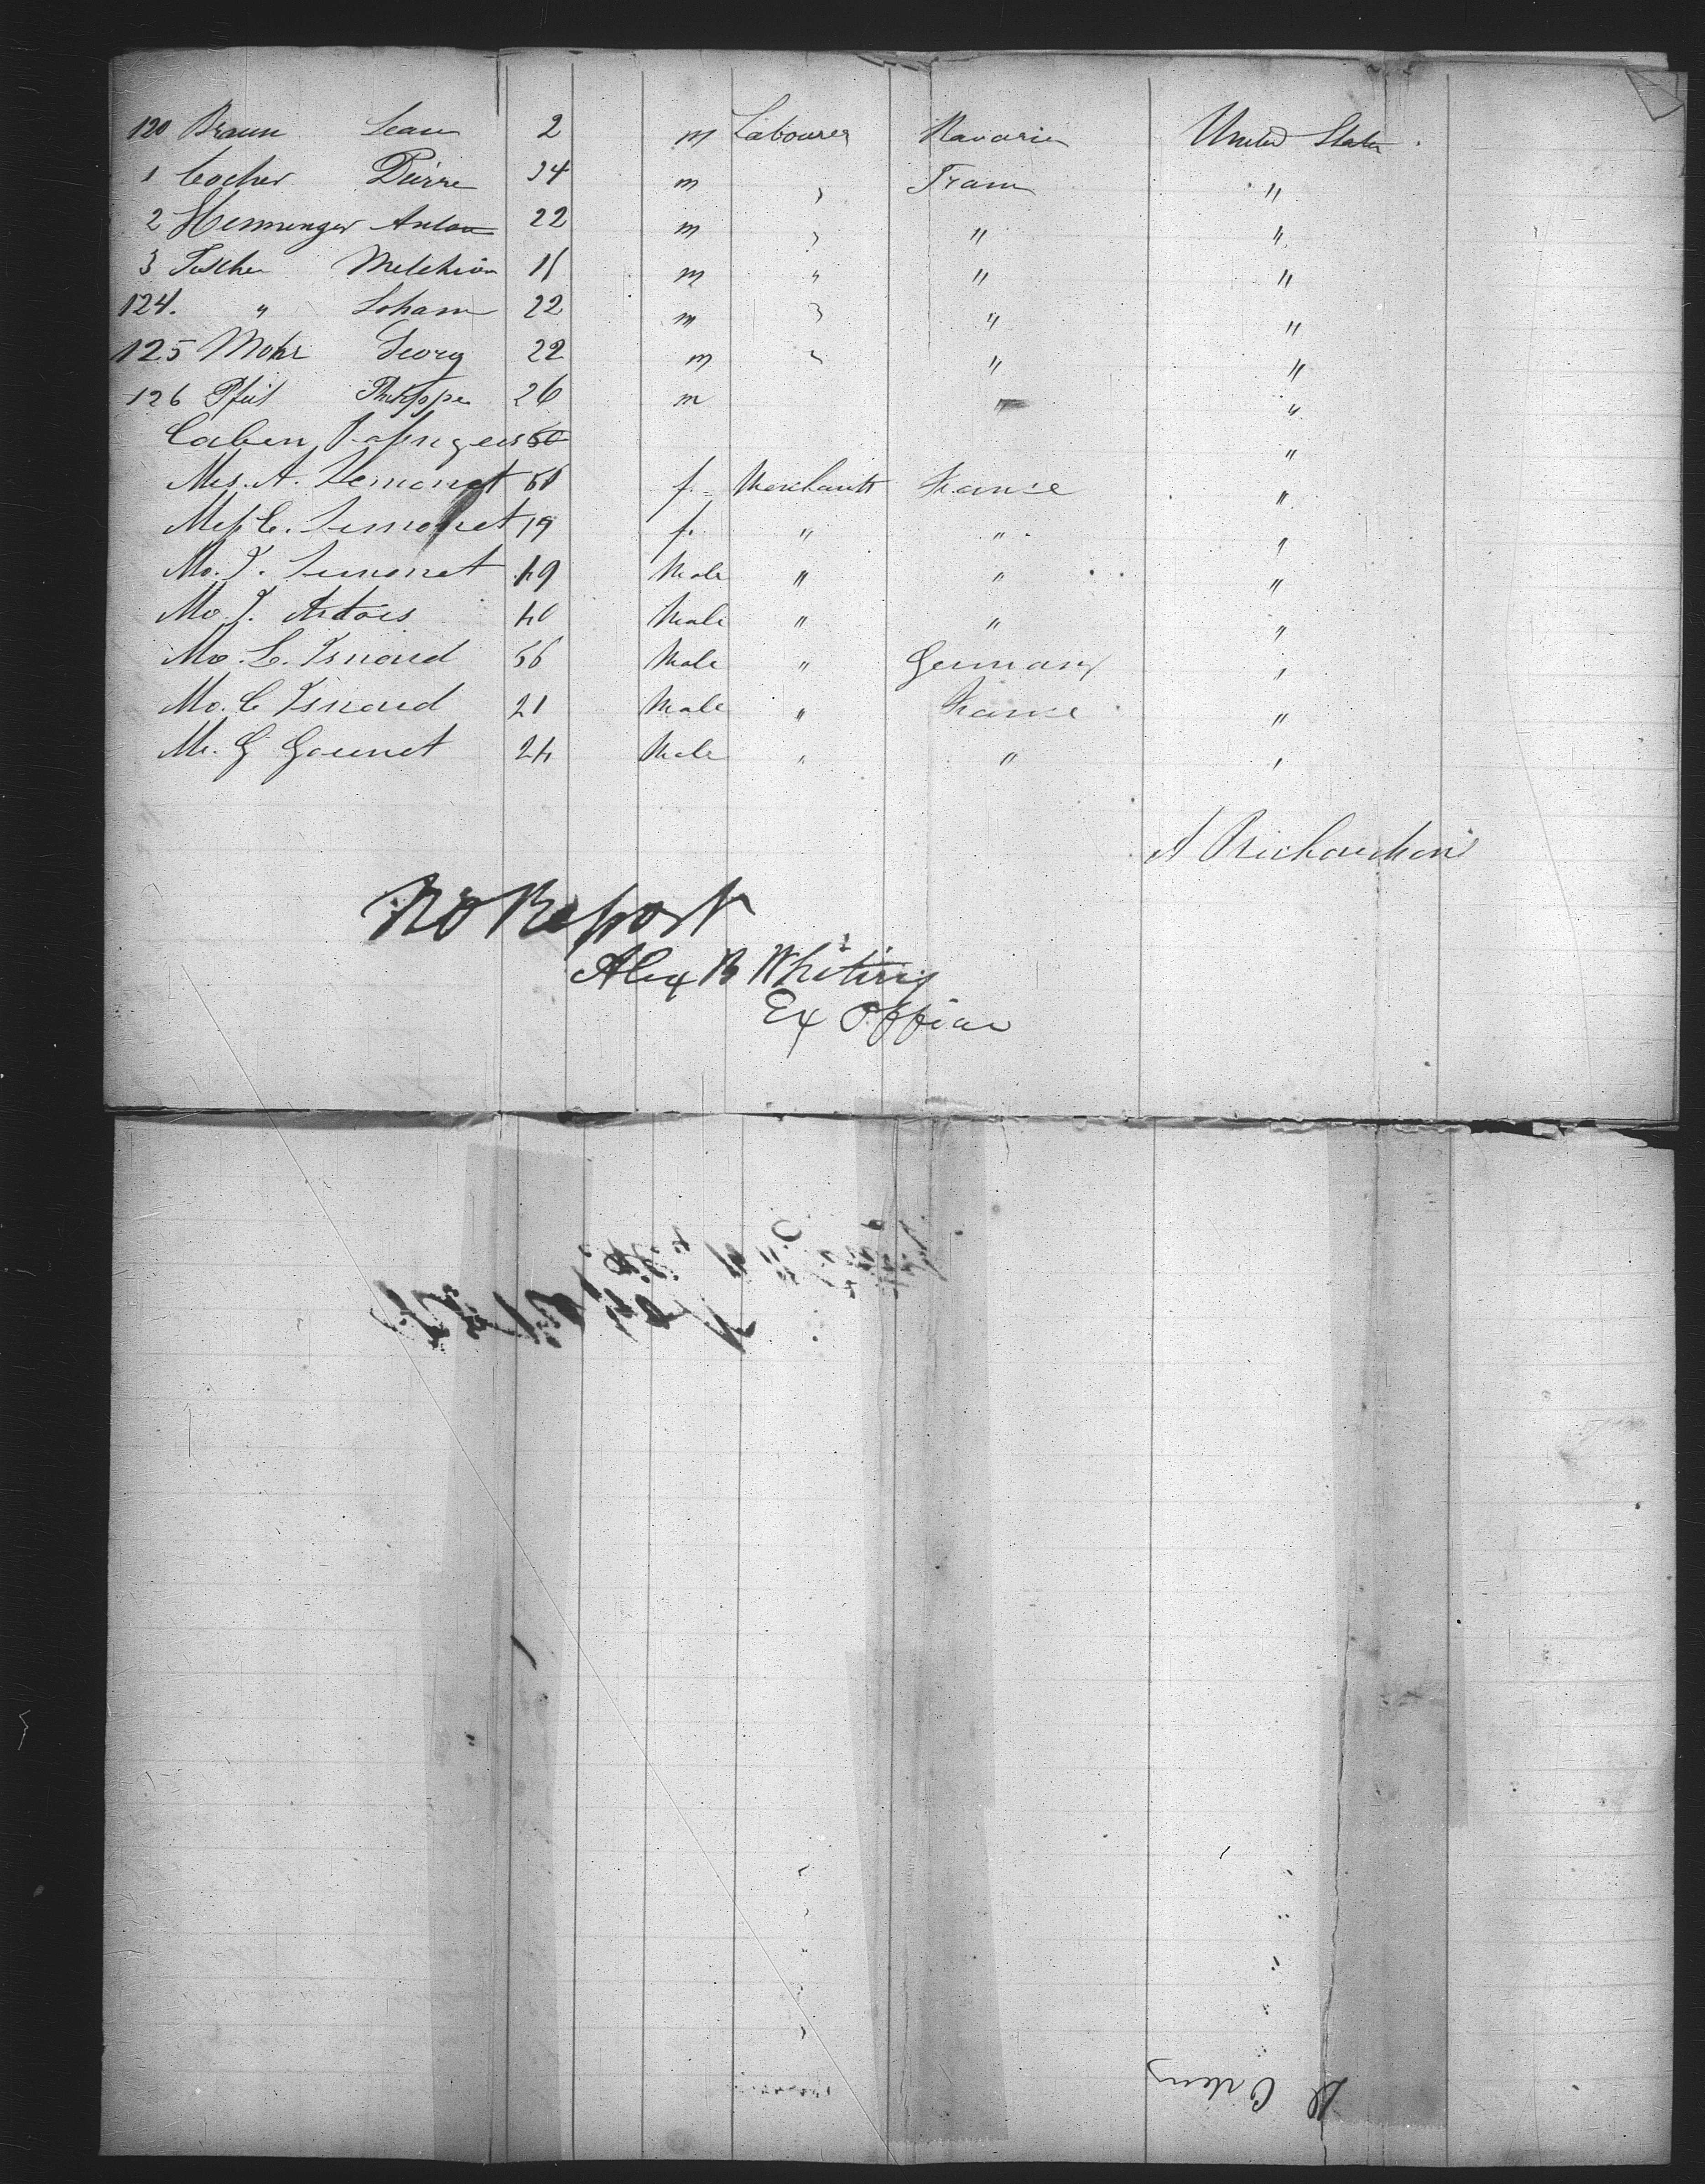 120 Braun Jean 2 m Labourer Bavaria United States
1 Cocher Pierre 24 m " France "
2 Hemmenger Anton 22 m " " "
3 Fischer Melchior 11 m " " "
124. " Johann 22 m " " "
125 Mohr Georg 22 m " " "
126 Philippe 26 m " "
Cabin Passengers "
Mrs. A. Simonet f. Merchants France "
Miss C. Simonet 19 f. " " "
Mr. J. Simonet 49 Male " " "
Mr. J. Artois 40 Male " " "
Mr. L. Isnard 56 Male " Germany "
Mr. C Isnard 21 Male " France "
Mr. G Gounet 24 Male " " "
A Richardson
No Report
Alex B Whiting
Ex Officer
N Orleans